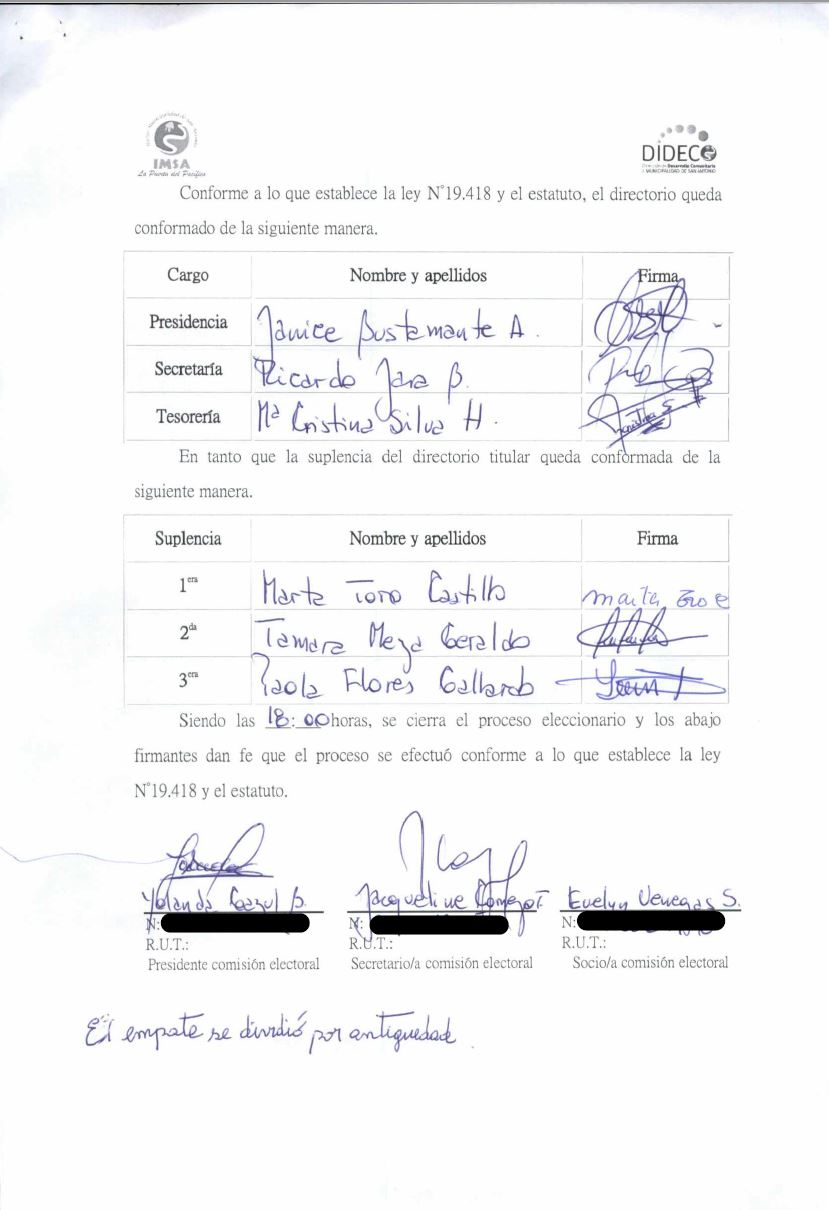 IMSA
La Puerta del Pacífico
DIDECO
Dirección de Desarrollo Comunitario
I. MUNICIPALIDAD DE SAN ANTONIO
Conforme a lo que establece la ley N°19.418 y el estatuto, el directorio queda
conformado de la siguiente manera.
Cargo Nombre y apellidos Firma
Presidencia Janice Bustamante A.
Secretaría Ricardo Jara B.
Tesorería Mª Cristina Silva H.
En tanto que la suplencia del directorio titular queda conformada de la
siguiente manera.
Suplencia Nombre y apellidos Firma
1era Marta Toro Castillo Marta Toro C
2da Tamara Meza Geraldo
3era Paola Flores Gallardo
Siendo las 18:00 horas, se cierra el proceso eleccionario y los abajo
firmantes dan fe que el proceso se efectuó conforme a lo que establece la ley
N°19.418 y el estatuto.
Yolanda B. Jacqueline Evelyn Venegas S.
N: N: N:
R.U.T.: R.U.T.: R.U.T.:
Presidente comisión electoral Secretario/a comisión electoral Socio/a comisión electoral
El empate se dividió por antiguedad.